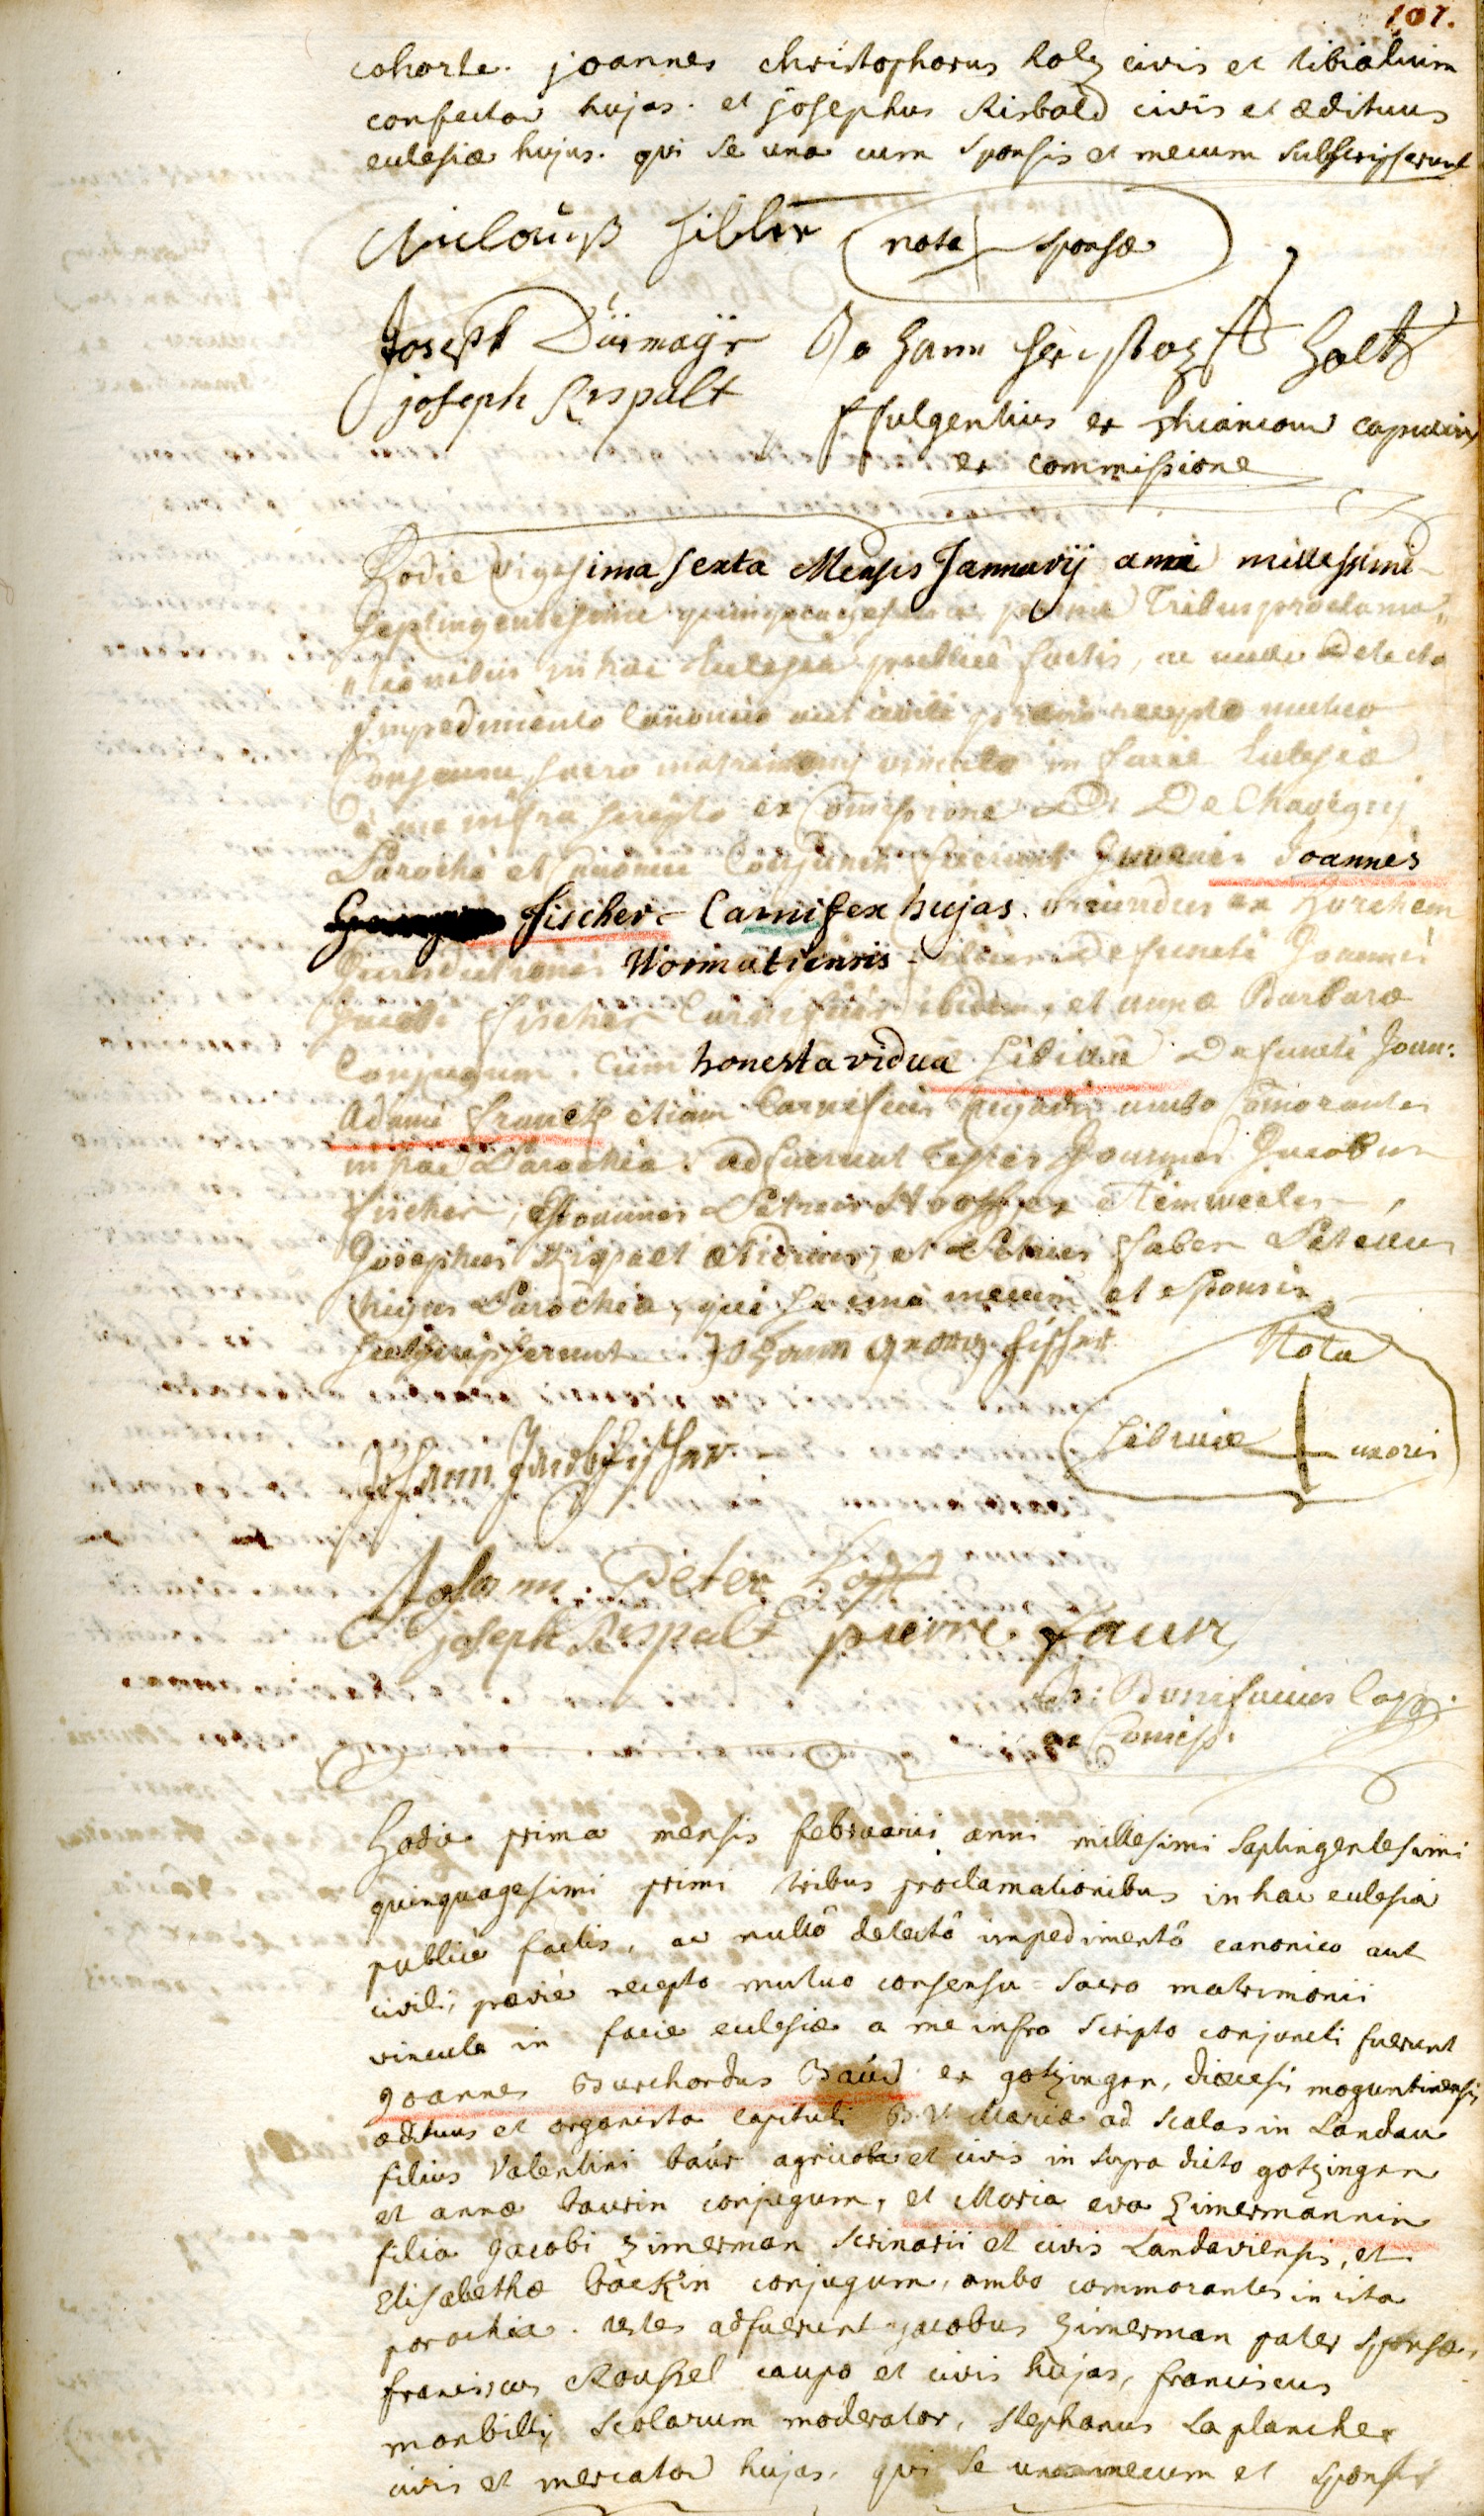 107.
cohorte. joannes christophorus holz civis et tibialium
confector hujas. et josephus Risbald civis et ædituus
eclesiæ hujus. qui se una cum sponsis et mecum subscripserunt
Niclauß
nota sponsæ
Joseph Dürmayr Johann holtz
joseph Rispalt
f fulgentius ex capucin
ex commissione
Hodie vigesima sexta Mensis Januarij anni millesimi
septingentesimi quinquagesimi primi Tribus proclama„
„tionibus in hac Eclesia publice factis, ac nullo Detecto
Impedimento Canonico aut civili prævio recepto mutuo
Consensu, sacro matrimonij vinculo in facie Eclesiæ
a me infra scripto ex Comissione D: De Chavigny
Parochi et Canonici Conjuncti fuerunt Juvenis Joannes
fischer Carnifex hujas. oriundus ex
Jurisdictionis Wormatiensis filius Defuncti Joannis
Jacobi fischer Carnificis ibidem, et annæ Barbaræ
Conjugum. Cum honesta vidua Defuncti Joan:
Adami franck etiam Carnificis hujatis ambo Comorantes
in hac Parochia. adfuerunt Testes Joannes Jacobus
fischer, Joannes Petrus Hoff ex
Josephus Rispalt ætidius, et Petrus faber
hujus Parochiæ, qui se una mecum et Sponsis
subscripserunt. Johann georg fischer
Nota
uxoris
Johann Jacob fischer
Johann Peter Hoff
joseph Rispalt pierre faur
f: Bonifacius Capp.
ex Comiss.
Hodie prima mensis februarii anni millesimi septingentesimi
quinquagesimi primi tribus proclamationibus in hac eclesia
publicè factis, ac nullô detectô impedimentô canonico aut
civili, prævie recepto mutuo consensu sacro matrimonii
vinculo in facie eclesiæ a me infra scripto conjuncti fuerunt
joannes Burchardus Baur ex gotzingen, diæcesis moguntinensis
ædituus et organista capituli B. V. Mariæ ad scalas in Landau
filius Valentini baur agricolæ et civis in supra dicto gotzingen
et annæ baurin conjugum, et Maria eva Zimermannin
filia jacobi Zimerman scrinarii et civis Landaviensis, et
Elisabethæ bockin conjugum, ambo commorantes in ista
parochia. testes adfuerunt jacobus Zimerman pater sponsæ,
franciscus Roussel caupo et civis hujas, franciscus
monbilly scolarum moderator, stephanus Laplanche
civis et mercator hujas, qui se una mecum et sponsis